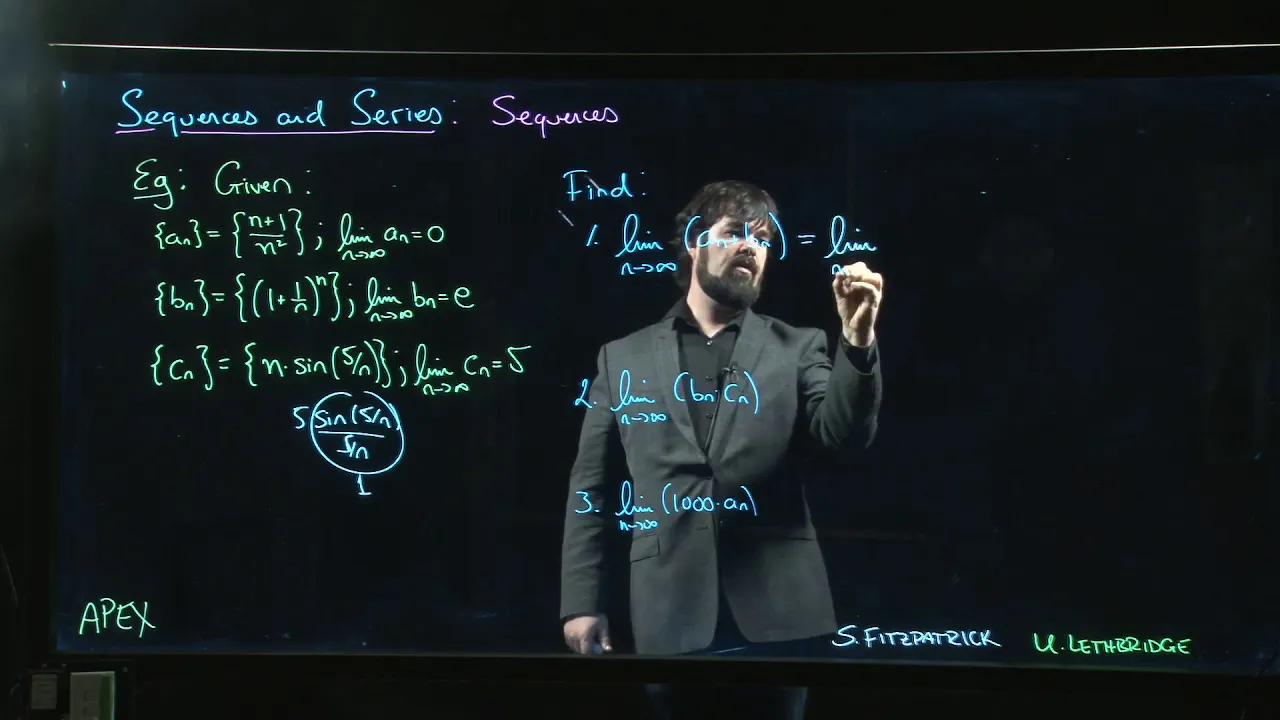 Sequences and Series: Sequences
Eg: Given:
{aₙ} = {(n+1)/n²}; lim n→∞ aₙ = 0
{bₙ} = {(1 + 1/n)ⁿ}; lim n→∞ bₙ = e
{cₙ} = {n·sin(5/n)}; lim n→∞ cₙ = 5
5 sin(5/n)
5/n
1
Find:
1. lim n→∞ (aₙ + bₙ) = lim
2. lim n→∞ (bₙ·cₙ)
3. lim n→∞ (1000·aₙ)
APEX
S. FITZPATRICK U. LETHBRIDGE